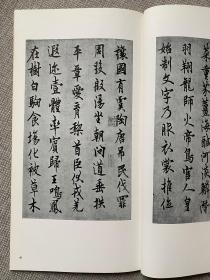 菜重芥薑海鹹河淡鱗潛
羽翔龍師火帝鳥官人皇
始制文字乃服衣裳推位
讓國有虞陶唐吊民伐罪
周發殷湯坐朝問道垂拱
平章愛育黎首臣伏戎羌
遐邇壹體率賓歸王鳴鳳
在樹白駒食場化被草木